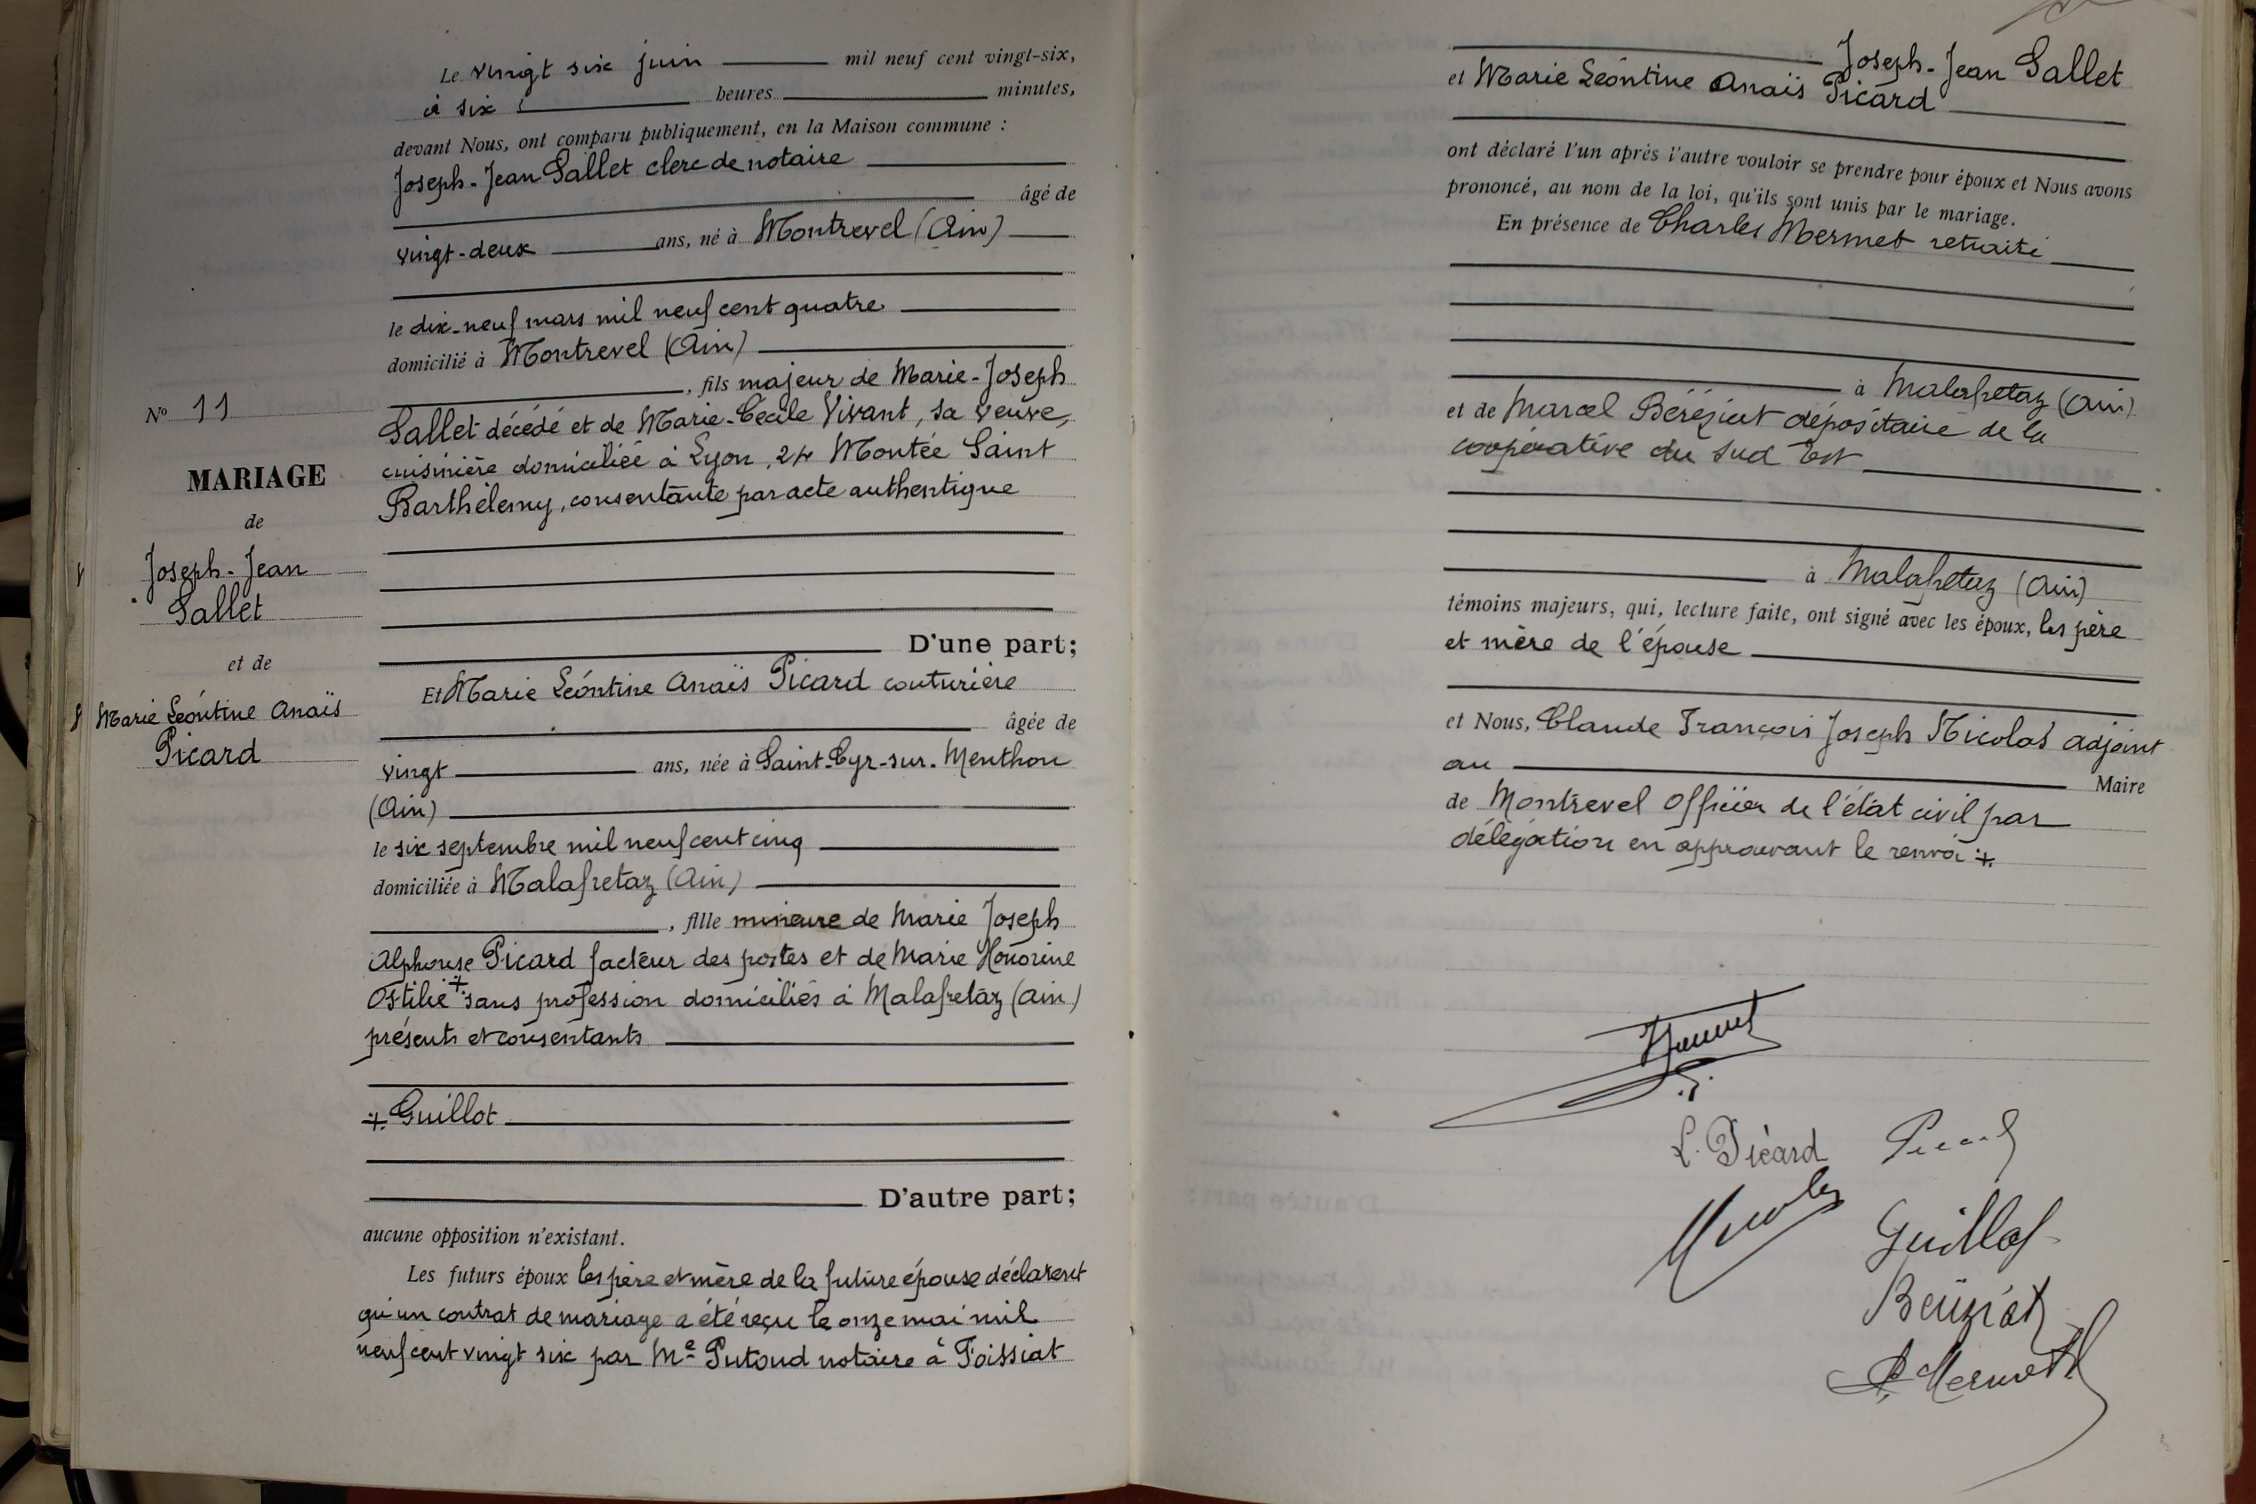 Le vingt six juin mil neuf cent vingt-six,
à six heures minutes,
devant Nous, ont comparu publiquement, en la Maison commune :
Joseph-Jean Sallet clerc de notaire
âgé de
vingt-deux ans, né à Montrevel (Ain)
le dix-neuf mars mil neuf cent quatre
domicilié à Montrevel (Ain)
, fils majeur de Marie-Joseph
Sallet décédé et de Marie-Cécile Vivant, sa veuve,
cuisinière domiciliée à Lyon, 24 Montée Saint
Barthélemy, consentante par acte authentique
D'une part;
Et Marie Léontine Anaïs Picard couturière
âgée de
vingt ans, née à Saint-Cyr-sur-Menthon
(Ain)
le six septembre mil neuf cent cinq
domiciliée à Malafretaz (Ain)
, fille mineure de Marie Joseph
Alphonse Picard facteur des postes et de Marie Honorine
Ostilie + sans profession domiciliés à Malafretaz (Ain)
présents et consentants
+ Guillot
D'autre part;
aucune opposition n'existant.
Les futurs époux les père et mère de la future épouse déclarent
qu'un contrat de mariage a été reçu le onze mai mil
neuf cent vingt six par Me Putoud notaire à Foissiat
N° 11
MARIAGE
de
Joseph-Jean
Sallet
et de
Marie Léontine Anaïs
Picard
Joseph-Jean Sallet
et Marie Léontine Anaïs Picard
ont déclaré l'un après l'autre vouloir se prendre pour époux et Nous avons
prononcé, au nom de la loi, qu'ils sont unis par le mariage.
En présence de Charles Mermet retraité
à Malafretaz (Ain)
et de Marcel Béréziat dépositaire de la
coopérative du Sud Est
à Malafretaz (Ain)
témoins majeurs, qui, lecture faite, ont signé avec les époux, les père
et mère de l'épouse
et Nous, Claude François Joseph Nicolas adjoint
au Maire
de Montrevel officier de l'état civil par
délégation en approuvant le renvoi +
L. Picard Picard
Nicolas
Guillot
Béréziat
C. Mermet